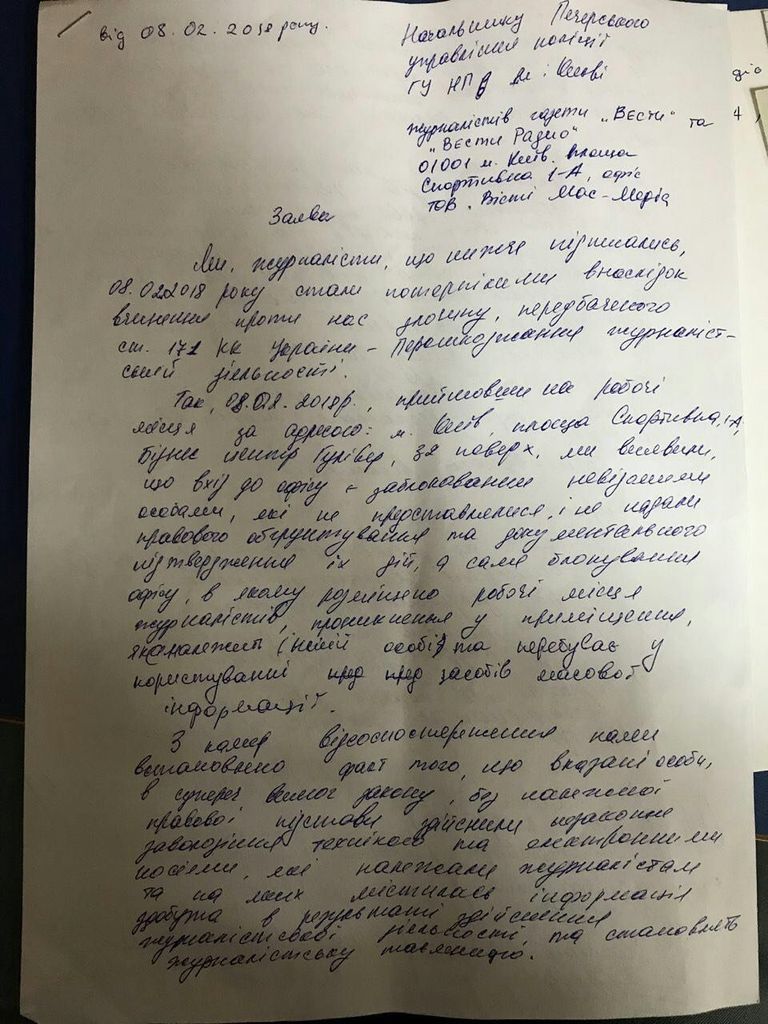 від 08.02.2018 року.
Начальнику Печерського
управління поліції
ГУ НП в м. Києві
журналістів газети „Вести" та
„Вести Радио"
01001 м. Київ. площа
Спортивна 1-А, офіс
ТОВ. Вісті Мас-Медіа
Заява
Ми, журналісти, що нижче підписались,
08.02.2018 року стали потерпілими внаслідок
вчинення проти нас злочину, передбаченого
ст. 171 КК України – Перешкоджання журналіст-
ській діяльності.
Так, 08.02.2018р., прийшовши на робочі
місця за адресою: м. Київ, площа Спортивна, 1-А,
Бізнес центр Гулівер, 32 поверх, ми виявили,
що вхід до офісу – заблокований невідомими
особами, які не представлялися, і не надали
правового обґрунтування та документального
підтвердження їх дій, а саме блокування
офісу, в якому розміщено робочі місця
журналістів, проникнення у приміщення,
яка належит (іншій особі) та перебуває у
користуванні пред пред засобів масової
інформації.
З камер відеоспостереження нами
встановлено факт того, що вказані особи,
в супереч вимог закону, без належної
правової підстави здійснили незаконне
заволодіння технікою та електронними
носіями, які належали журналістам
та на яких містилась інформація
здобута в результаті здійснення
журналістської діяльності, та становлять
журналістську таємницю.
діо
4,